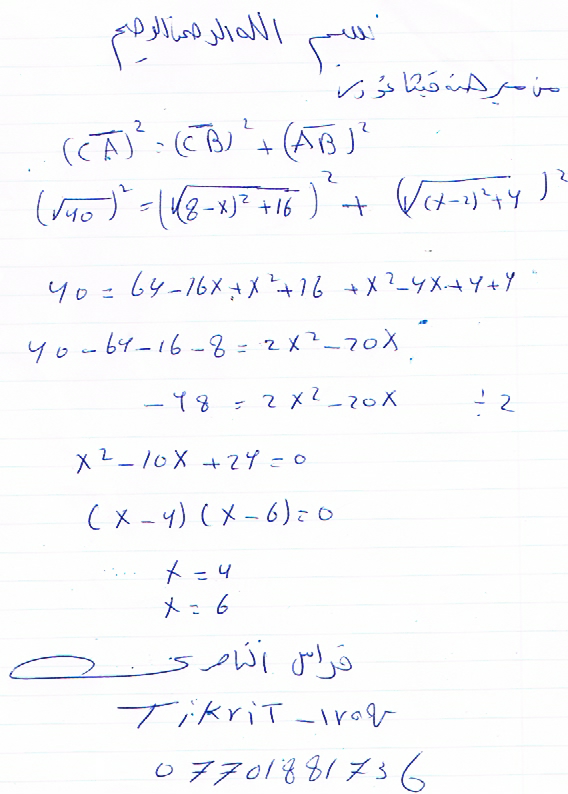 بسم الله الرحمن الرحيم
من مبرهنة فيثاغورس
(C̅A̅)² = (C̅B̅)² + (A̅B̅)²
(√40)² = (√(8-x)²+16)² + (√(x-2)²+4)²
40 = 64-16x+x²+16 +x²-4x+4+4
40-64-16-8 = 2x²-20x
-48 = 2x²-20x ÷2
x²-10x+24=0
(x-4)(x-6)=0
x=4
x=6
فراس
TikriT-Iraq
07701881736